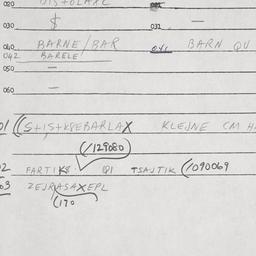 020 DIS+OLAXE
030 $ 031 —
040 BARNE/BAR 041 BARN QU
042 BARELE
050 —
060 —
01 ((S+1S+K8EBARLAX KLEJNE CM
(/129080)
02 FARTIK8 181 TSAJTIK (/090069
03 ZEJRASAXEPL
(170